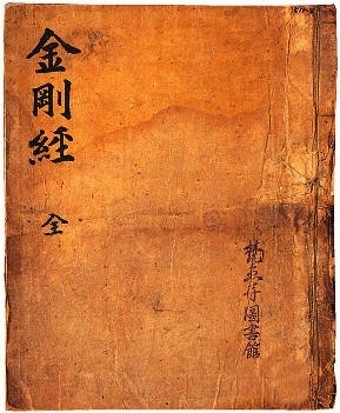 金剛經
全
圖書館